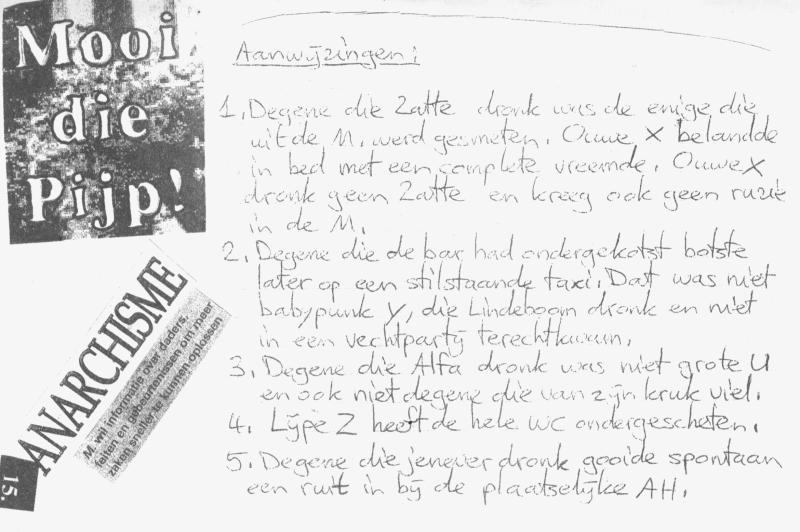 Mooi
die
Pijp!
15.
ANARCHISME
M. wil informatie over daders,
feiten en gebeurtenissen om meer
zaken sneller te kunnen oplossen
Aanwijzingen:
1. Degene die Zatte dronk was de enige die
uit de M. werd gesmeten. Ouwe X belandde
in bed met een complete vreemde. Ouwe X
dronk geen Zatte en kreeg ook geen ruzie
in de M.
2. Degene die de bar had ondergekotst botste
later op een stilstaande taxi. Dat was niet
babypunk Y, die Lindeboom dronk en niet
in een vechtpartij terechtkwam.
3. Degene die Alfa dronk was niet grote U
en ook niet degene die van zijn kruk viel.
4. Lijpe Z heeft de hele WC ondergescheten.
5. Degene die jenever dronk gooide spontaan
een ruit in bij de plaatselijke AH.